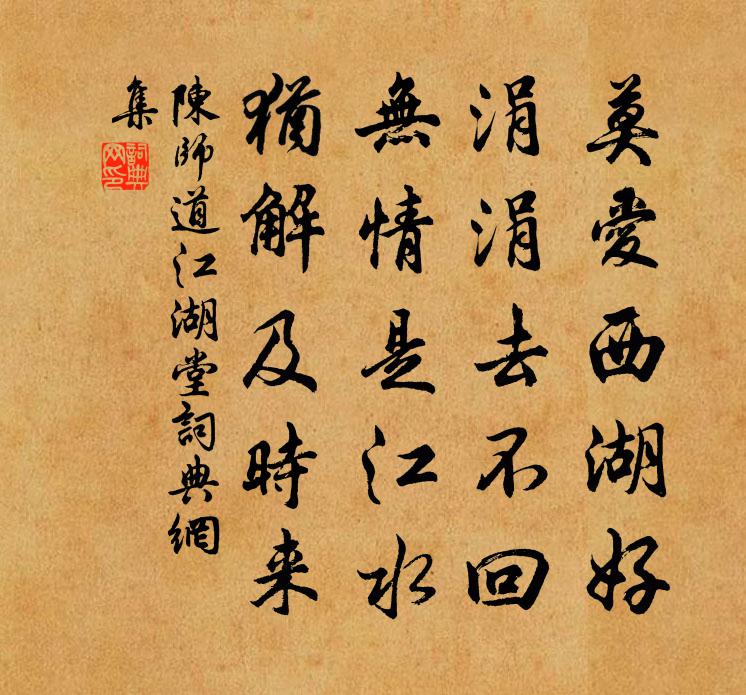 莫愛西湖好
涓涓去不回
無情是江水
猶解及時来
陳師道江湖堂詞典網
集
詞典
网印